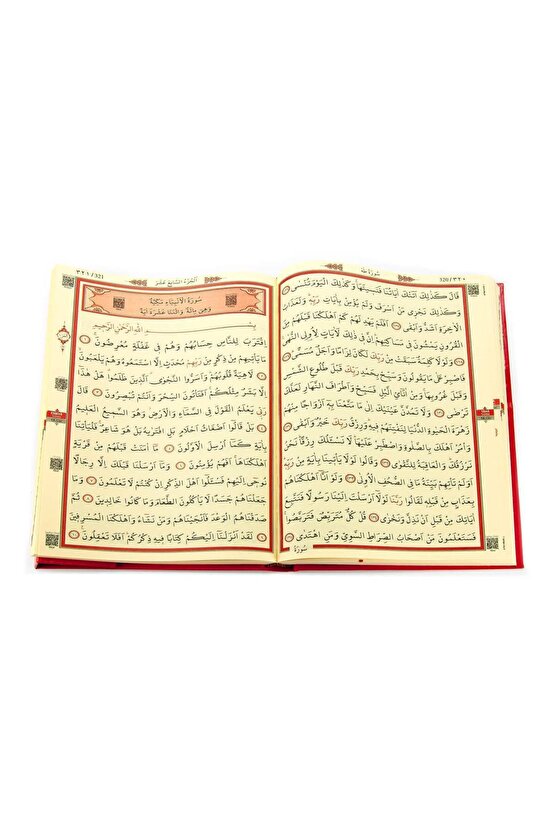 سُورَةُ طٰهٰ
320 / ٣٢٠
قَالَ كَذٰلِكَ اَتَتْكَ اٰيَاتُنَا فَنَسِيتَهَا وَكَذٰلِكَ الْيَوْمَ تُنْسٰى
وَكَذٰلِكَ نَجْزِى مَنْ اَسْرَفَ وَلَمْ يُؤْمِنْ بِاٰيَاتِ رَبِّهِ وَلَعَذَابُ
الْاٰخِرَةِ اَشَدُّ وَاَبْقٰى اَفَلَمْ يَهْدِ لَهُمْ كَمْ اَهْلَكْنَا قَبْلَهُمْ مِنَ
الْقُرُونِ يَمْشُونَ فِى مَسَاكِنِهِمْ اِنَّ فِى ذٰلِكَ لَاٰيَاتٍ لِاُولِى النُّهٰى
وَلَوْلَا كَلِمَةٌ سَبَقَتْ مِنْ رَبِّكَ لَكَانَ لِزَامًا وَاَجَلٌ مُسَمًّى
فَاصْبِرْ عَلٰى مَا يَقُولُونَ وَسَبِّحْ بِحَمْدِ رَبِّكَ قَبْلَ طُلُوعِ الشَّمْسِ
وَقَبْلَ غُرُوبِهَا وَمِنْ اٰنَاۤئِ الَّيْلِ فَسَبِّحْ وَاَطْرَافَ النَّهَارِ لَعَلَّكَ
تَرْضٰى وَلَا تَمُدَّنَّ عَيْنَيْكَ اِلٰى مَا مَتَّعْنَا بِهِ اَزْوَاجًا مِنْهُمْ
زَهْرَةَ الْحَيٰوةِ الدُّنْيَا لِنَفْتِنَهُمْ فِيهِ وَرِزْقُ رَبِّكَ خَيْرٌ وَاَبْقٰى
وَاْمُرْ اَهْلَكَ بِالصَّلٰوةِ وَاصْطَبِرْ عَلَيْهَا لَا نَسْـَٔلُكَ رِزْقًا نَحْنُ
نَرْزُقُكَ وَالْعَاقِبَةُ لِلتَّقْوٰى وَقَالُوا لَوْلَا يَاْتِينَا بِاٰيَةٍ مِنْ رَبِّهِ
اَوَلَمْ تَاْتِهِمْ بَيِّنَةُ مَا فِى الصُّحُفِ الْاُولٰى وَلَوْ اَنَّا اَهْلَكْنَاهُمْ
بِعَذَابٍ مِنْ قَبْلِهِ لَقَالُوا رَبَّنَا لَوْلَا اَرْسَلْتَ اِلَيْنَا رَسُولًا فَنَتَّبِعَ
اٰيَاتِكَ مِنْ قَبْلِ اَنْ نَذِلَّ وَنَخْزٰى قُلْ كُلٌّ مُتَرَبِّصٌ فَتَرَبَّصُوا
فَسَتَعْلَمُونَ مَنْ اَصْحَابُ الصِّرَاطِ السَّوِىِّ وَمَنِ اهْتَدٰى
سُورَةُ
اَلْجُزْءُ السَّابِعَ عَشَرَ
٣٢١ / 321
سُورَةُ الْاَنْبِيَاءِ مَكِّيَّةٌ
وَهِىَ مِائَةٌ وَاثْنَتَا عَشْرَةَ اٰيَةً
بِسْمِ اللّٰهِ الرَّحْمٰنِ الرَّحِيمِ
اِقْتَرَبَ لِلنَّاسِ حِسَابُهُمْ وَهُمْ فِى غَفْلَةٍ مُعْرِضُونَ ١
مَا يَاْتِيهِمْ مِنْ ذِكْرٍ مِنْ رَبِّهِمْ مُحْدَثٍ اِلَّا اسْتَمَعُوهُ وَهُمْ يَلْعَبُونَ
٢ لَاهِيَةً قُلُوبُهُمْ وَاَسَرُّوا النَّجْوَى الَّذِينَ ظَلَمُوا هَلْ هٰذَا
اِلَّا بَشَرٌ مِثْلُكُمْ اَفَتَاْتُونَ السِّحْرَ وَاَنْتُمْ تُبْصِرُونَ ٣ قَالَ
رَبِّى يَعْلَمُ الْقَوْلَ فِى السَّمَاءِ وَالْاَرْضِ وَهُوَ السَّمِيعُ الْعَلِيمُ
٤ بَلْ قَالُوا اَضْغَاثُ اَحْلَامٍ بَلِ افْتَرٰيهُ بَلْ هُوَ شَاعِرٌ فَلْيَاْتِنَا
بِاٰيَةٍ كَمَا اُرْسِلَ الْاَوَّلُونَ ٥ مَا اٰمَنَتْ قَبْلَهُمْ مِنْ قَرْيَةٍ
اَهْلَكْنَاهَا اَفَهُمْ يُؤْمِنُونَ ٦ وَمَا اَرْسَلْنَا قَبْلَكَ اِلَّا رِجَالًا
نُوحِى اِلَيْهِمْ فَسْـَٔلُوا اَهْلَ الذِّكْرِ اِنْ كُنْتُمْ لَا تَعْلَمُونَ ٧ وَمَا
جَعَلْنَاهُمْ جَسَدًا لَا يَاْكُلُونَ الطَّعَامَ وَمَا كَانُوا خَالِدِينَ ٨ ثُمَّ
صَدَقْنَاهُمُ الْوَعْدَ فَاَنْجَيْنَاهُمْ وَمَنْ نَشَاءُ وَاَهْلَكْنَا الْمُسْرِفِينَ
٩ لَقَدْ اَنْزَلْنَا اِلَيْكُمْ كِتَابًا فِيهِ ذِكْرُكُمْ اَفَلَا تَعْقِلُونَ ١٠